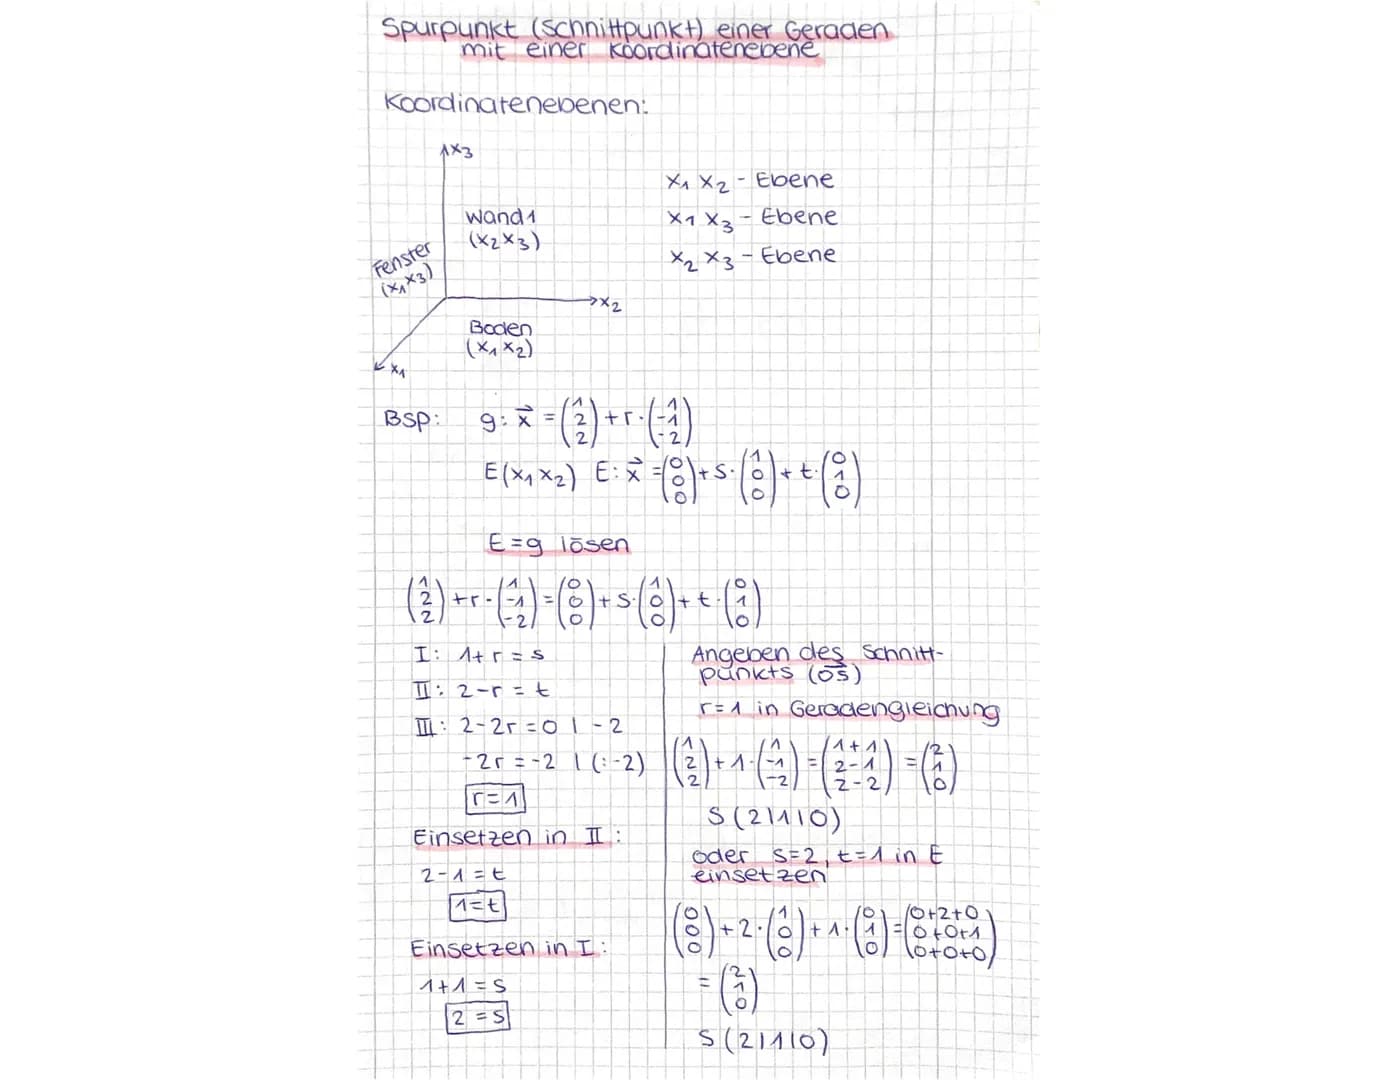 Spurpunkt (Schnittpunkt) einer Geraden
mit einer Koordinatenebene
Koordinatenebenen:
x3
x1 x2 - Ebene
Wand 1
(x2x3)
x1 x3 - Ebene
Fenster
(x1x3)
x2 x3 - Ebene
x2
Boden
(x1x2)
x1
BSP: g: x⃗ = (1 2 2) + r · (1 -1 -2)
E(x1x2) E: x⃗ = (0 0 0) + s · (1 0 0) + t · (0 1 0)
E = g lösen
(1 2 2) + r · (1 -1 -2) = (0 0 0) + s · (1 0 0) + t · (0 1 0)
I: 1 + r = s
II: 2 - r = t
III: 2 - 2r = 0 | - 2
-2r = -2 | (: -2)
r = 1
Einsetzen in II:
2 - 1 = t
1 = t
Einsetzen in I:
1 + 1 = s
2 = s
Angeben des Schnitt-
punkts (OS⃗)
r = 1 in Geradengleichung
(1 2 2) + 1 · (1 -1 -2) = (1+1 2-1 2-2) = (2 1 0)
S (2|1|0)
oder s=2, t=1 in E
einsetzen
(0 0 0) + 2 · (1 0 0) + 1 · (0 1 0) = (0+2+0 0+0+1 0+0+0)
= (2 1 0)
S (2|1|0)